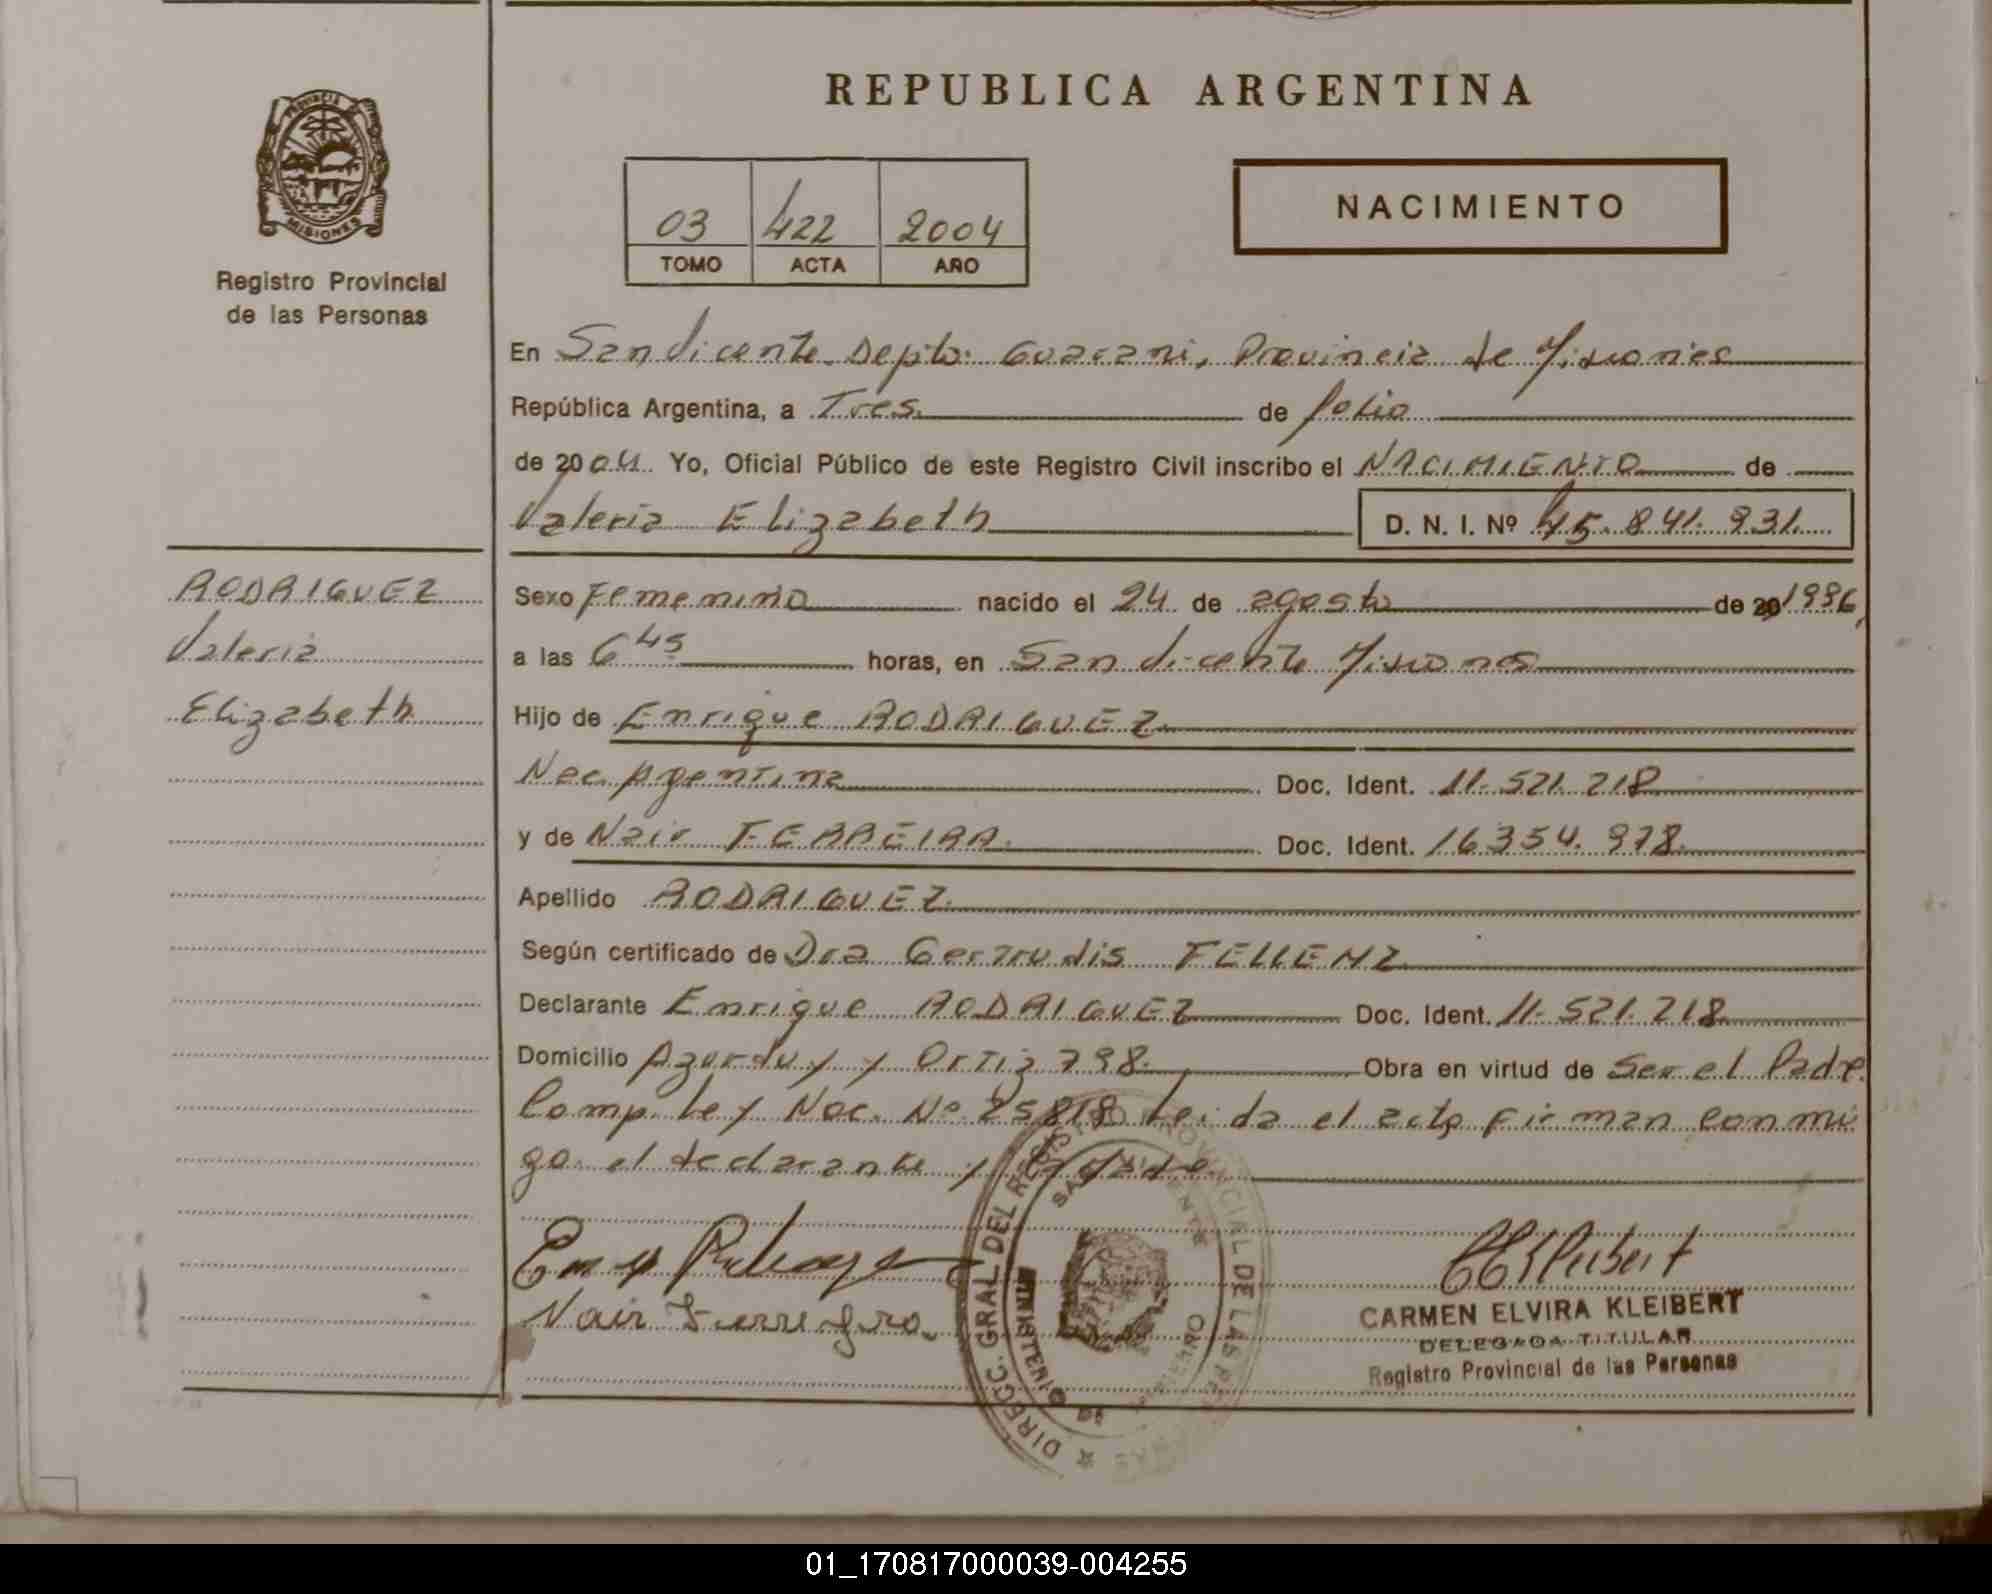 REPUBLICA ARGENTINA
PROVINCIA DE
MISIONES
Registro Provincial
de las Personas
NACIMIENTO
03 422 2004
TOMO ACTA AÑO
En San Vicente Depto: Guarani, Provincia de Misiones
República Argentina, a Tres de Julio
de 2004 Yo, Oficial Público de este Registro Civil inscribo el NACIMIENTO de
Valeria Elizabeth D. N. I. Nº 45.841.931.
RODRIGUEZ
Valeria
Elizabeth
Sexo Femenino nacido el 24 de agosto de 20 1996
a las 6 45 horas, en San Vicente Misiones
Hijo de Enrique RODRIGUEZ
Nac. Argentina Doc. Ident. 11.521.218
y de Nair FERREIRA. Doc. Ident. 16354.978.
Apellido RODRIGUEZ.
Según certificado de Dra Gertrudis FELLENZ
Declarante Enrique RODRIGUEZ Doc. Ident. 11.521.218
Domicilio Azurduy y Ortiz 798. Obra en virtud de Ser el Padre.
Nac. Nº 25818 Leida el acta firman conmi
go el declarante y
Nair Ferreyra.
CARMEN ELVIRA KLEIBERT
DELEGADA TITULAR
Registro Provincial de las Personas
DIRECC. GRAL DEL REGISTRO PROVINCIAL DE LAS PERSONAS
SAN VICENTE
MINISTERIO DE GOBIERNO
01_170817000039-004255